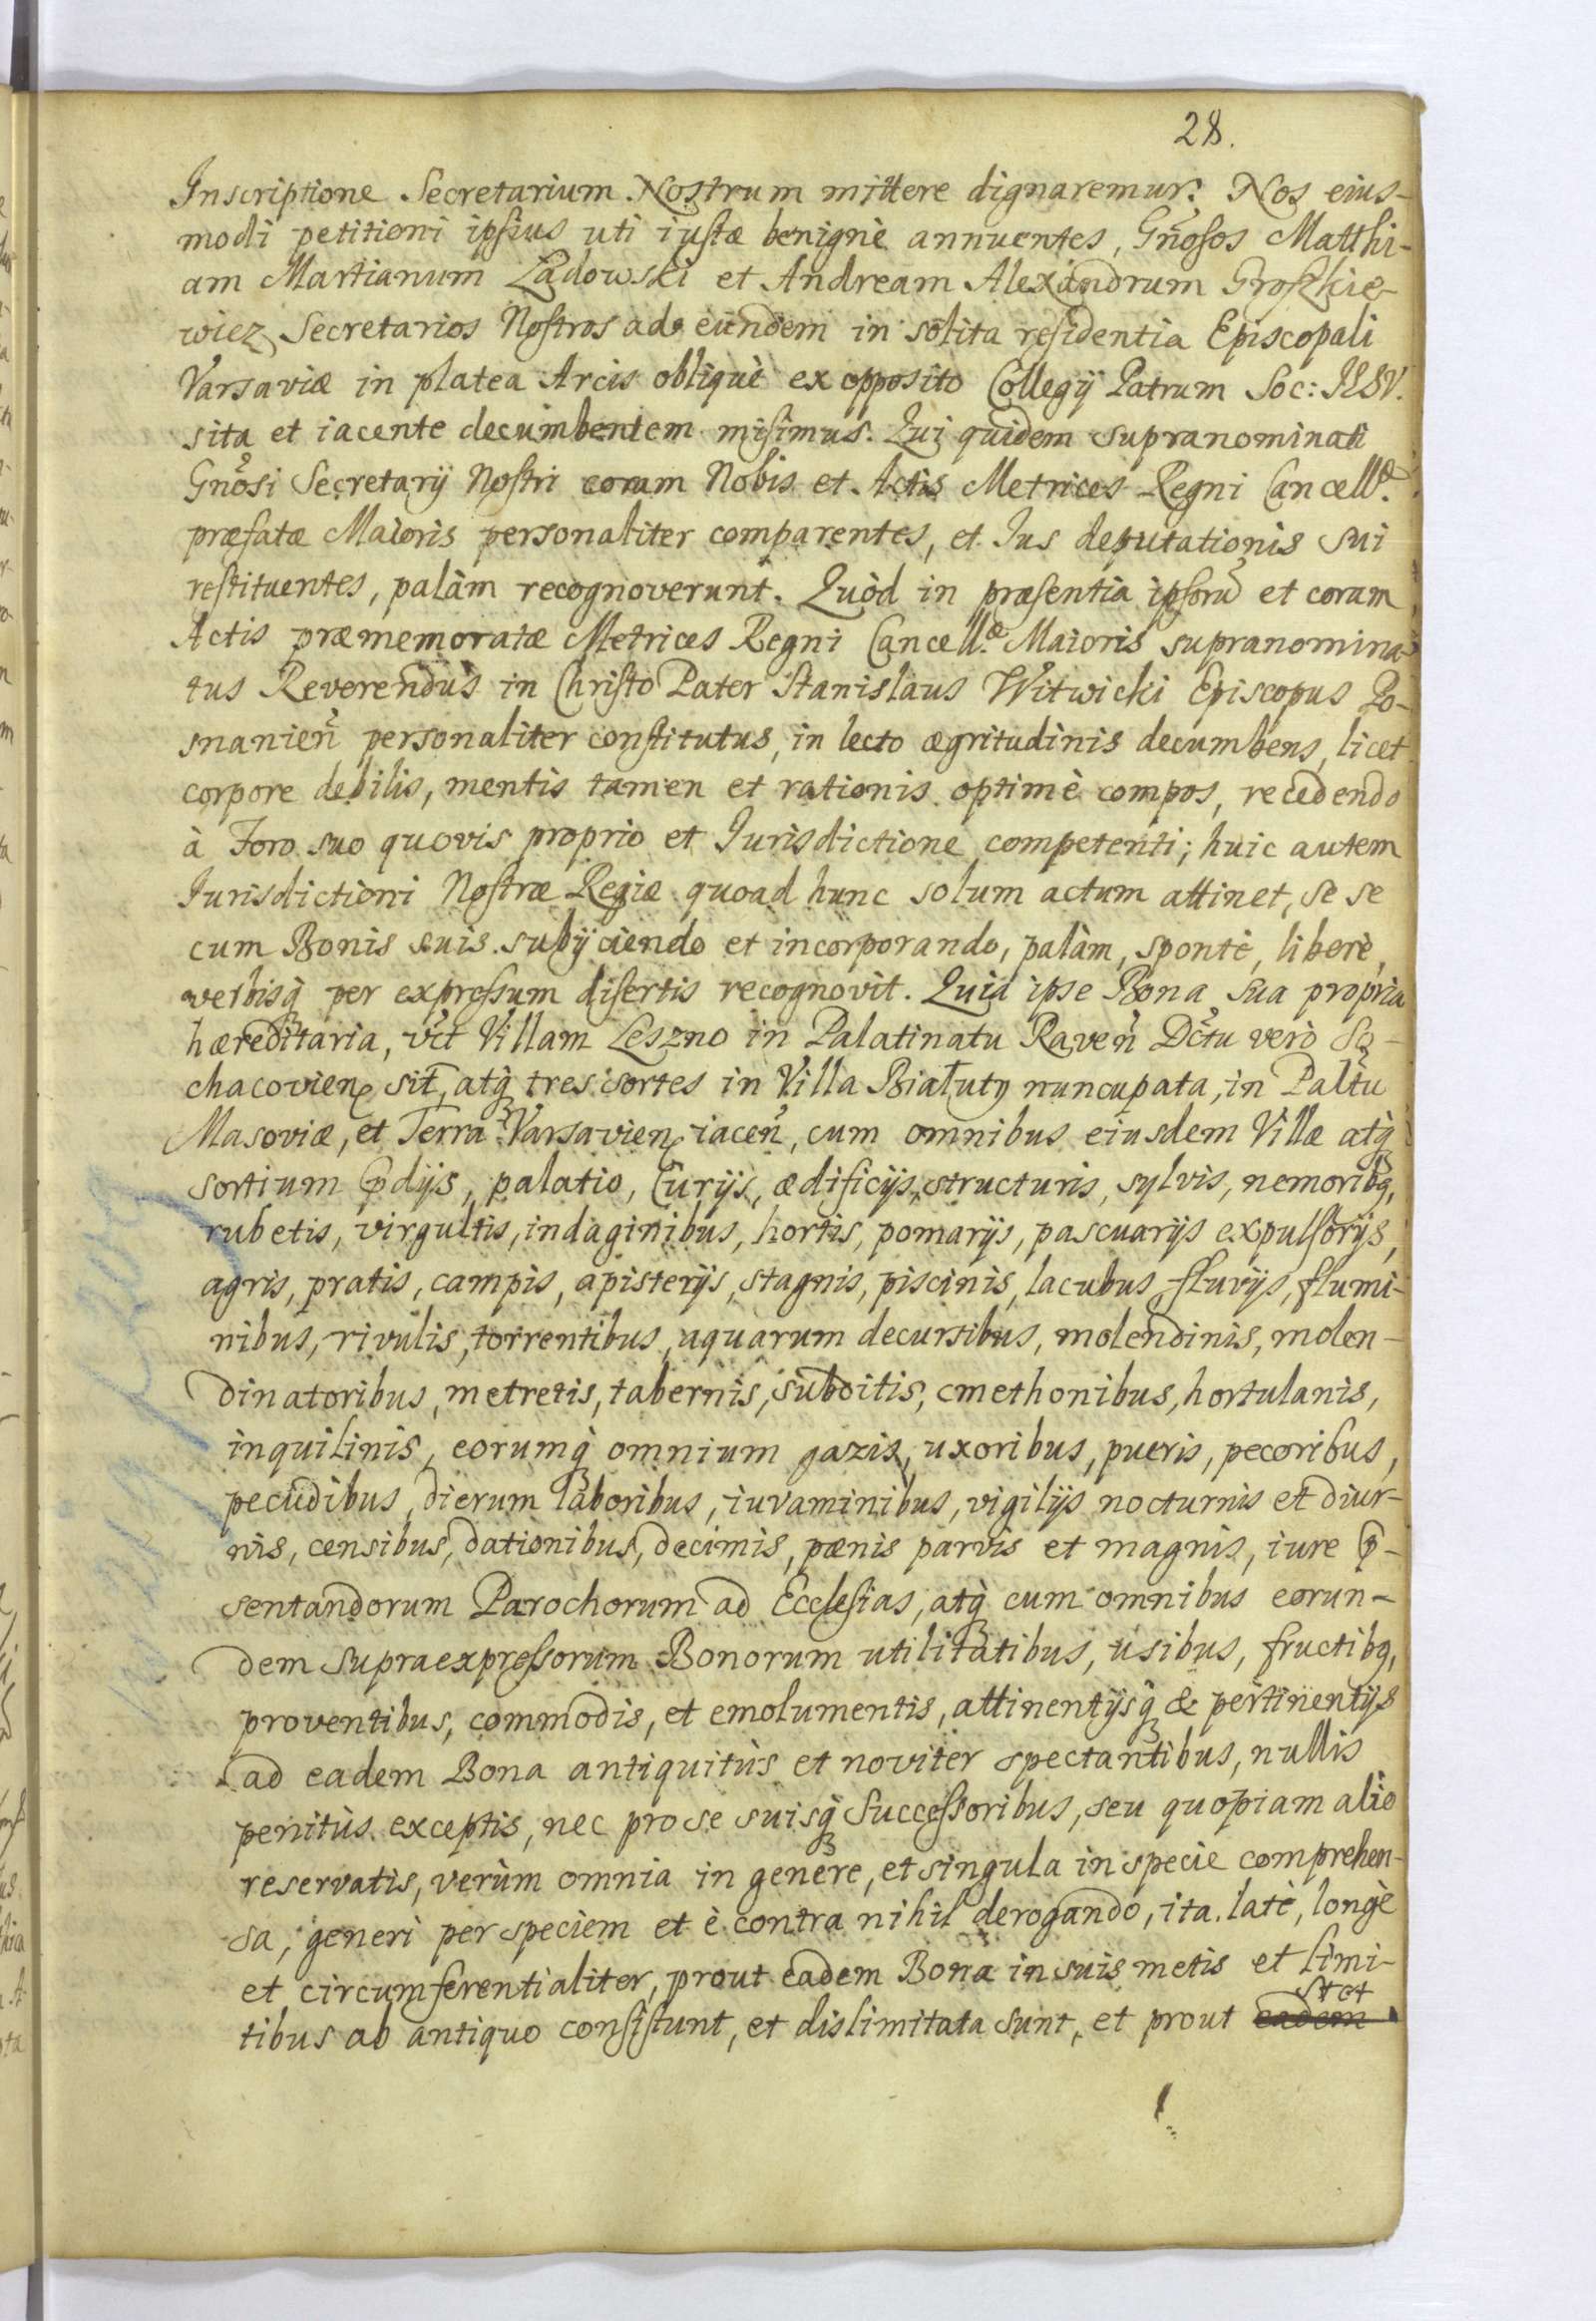 28.
Inscriptione Secretarium Nostrum mittere dignaremur. Nos eius-
modi petitioni ipsius uti iustæ benignè annuentes, Gn̄osos Matthi-
am Martianum Ładowski et Andream Alexandrum Groszkie-
wicz Secretarios Nostros ad eundem in solita residentia Episcopali
Varsaviæ in platea Arcis obliquè ex opposito Collegij Patrum Soc: IESV.
sita et iacente decumbentem misimus. Qui quidem supranominati
Gnosi Secretarij Nostri coram Nobis et Actis Metrices Regni Cancellæ.
præfatæ Maioris personaliter comparentes, et Ius deputationis sui
restituentes, palàm recognoverunt. Quòd in præsentia ipsorū et coram
Actis præmemoratæ Metrices Regni Cancellæ. Maioris supranomina-
tus Reverendus in Christo Pater Stanislaus Witwicki Episcopus Po-
snanien̄ personaliter constitutus, in lecto ægritudinis decumbens, licet
corpore debilis, mentis tamen et rationis optimè compos, recedendo
à Foro suo quovis proprio et Iurisdictione competenti; huic autem
Iurisdictioni Nostræ Regiæ quoad hunc solum actum attinet, se se
cum Bonis suis subijciendo et incorporando, palàm, spontè, liberè,
verbisq̀ per expressum disertis recognovit. Quia ipse Bona sua propria
hæreditaria, vc̄t Villam Leszno in Palatinatu Raven̄ Dc̄tu verò So-
chacovien sit̄, atq̀ tres sortes in Villa Białuty nuncupata, in Paltu
Masoviæ, et Terra Varsavien iacen̄, cum omnibus eiusdem Villæ atq̀
sortium p̄dijs, palatio, Curijs, ædificijs, structuris, sylvis, nemoribq,
rubetis, virgultis, indaginibus, hortis, pomarijs, pascuarijs expulsorijs,
agris, pratis, campis, apisterijs, stagnis, piscinis, lacubus fluvijs, flumi-
nibus, rivulis, torrentibus, aquarum decursibus, molendinis, molen-
dinatoribus, metretis, tabernis, subditis, cmethonibus, hortulanis,
inquilinis, eorumq̀ omnium gazis, uxoribus, pueris, pecoribus,
pecudibus, dierum laboribus, iuvaminibus, vigilijs nocturnis et diur-
nis, censibus, dationibus, decimis, pœnis parvis et magnis, iure p̄-
sentandorum Parochorum ad Ecclesias, atq̀ cum omnibus eorun-
dem supraexpressorum Bonorum utilitatibus, usibus, fructibq,
proventibus, commodis, et emolumentis, attinentijsq̀ & pertinentijs
ad eadem Bona antiquitùs et noviter spectantibus, nullis
penitùs exceptis, nec pro se suisq̀ Successoribus, seu quopiam alio
reservatis, verùm omnia in genere, et singula in specie comprehen-
sa, generi per speciem et è contra nihil derogando, ita latè, longè
et circumferentialiter, prout eadem Bona in suis metis et limi-
tibus ab antiquo consistunt, et dislimitata sunt, et prout eadem